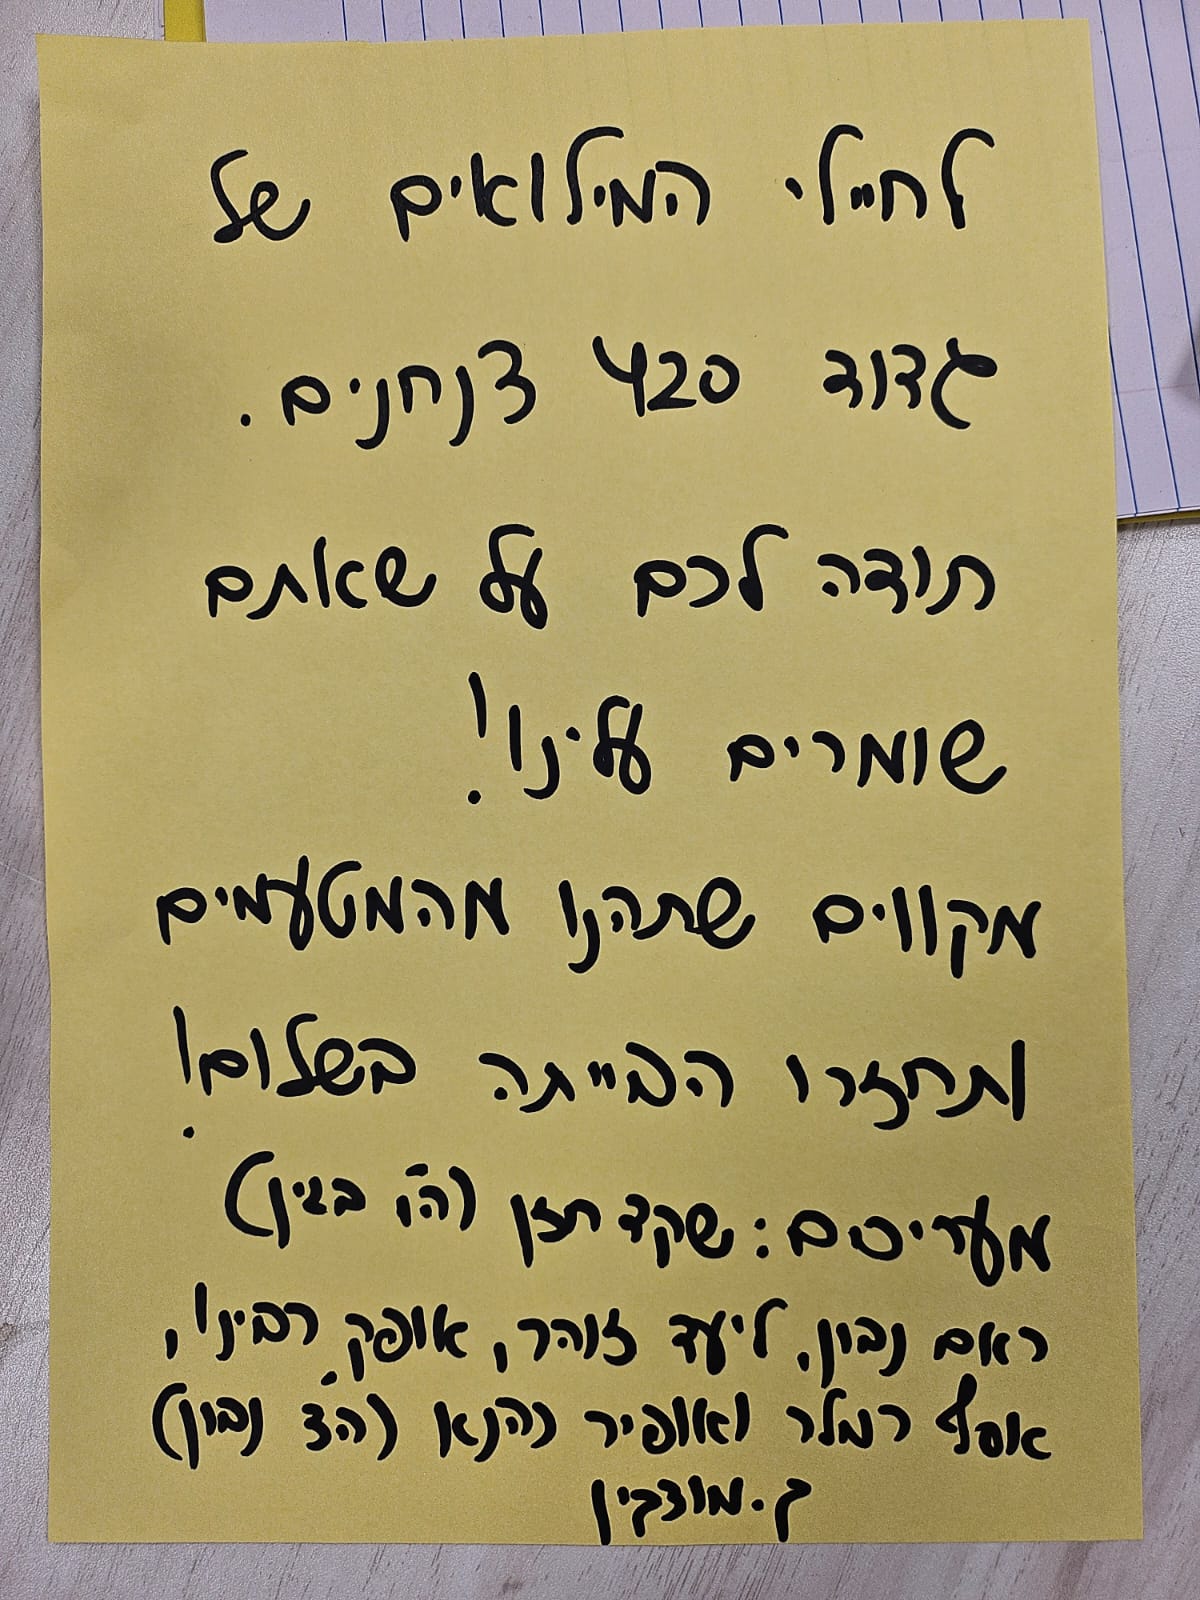 לחיילי המילואים של
גדוד 420 צנחנים.
תודה לכם על שאתם
שומרים עלינו!
מקווים שתהנו מהמטעמים
ותחזרו הבייתה בשלום!
מעריכים: שקד חזן (ה׳ו בגין)
ראם נבון, ליעד זוהר, אופק רבינו,
אסף רמלר ואופיר כהנא (ה׳צ נבון)